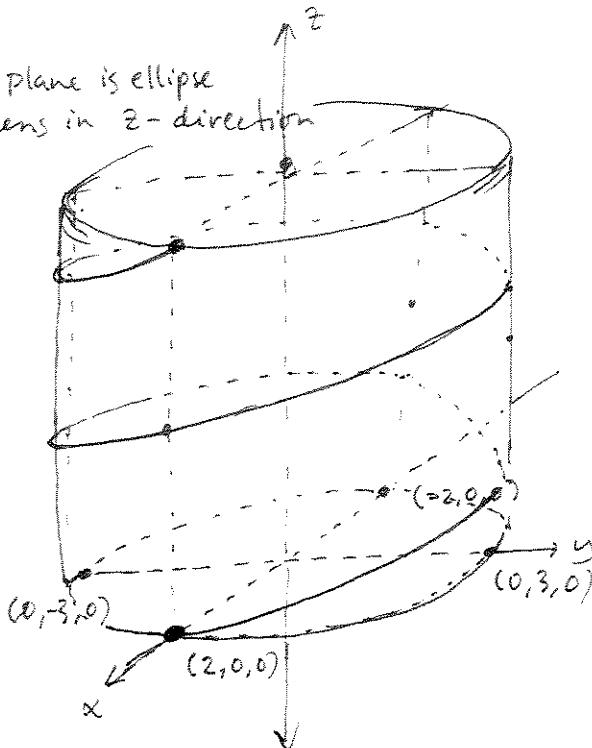 z
plane is ellipse
ens in z-direction
(-2,0,0)
y
(0,3,0)
(0,-3,0)
(2,0,0)
x